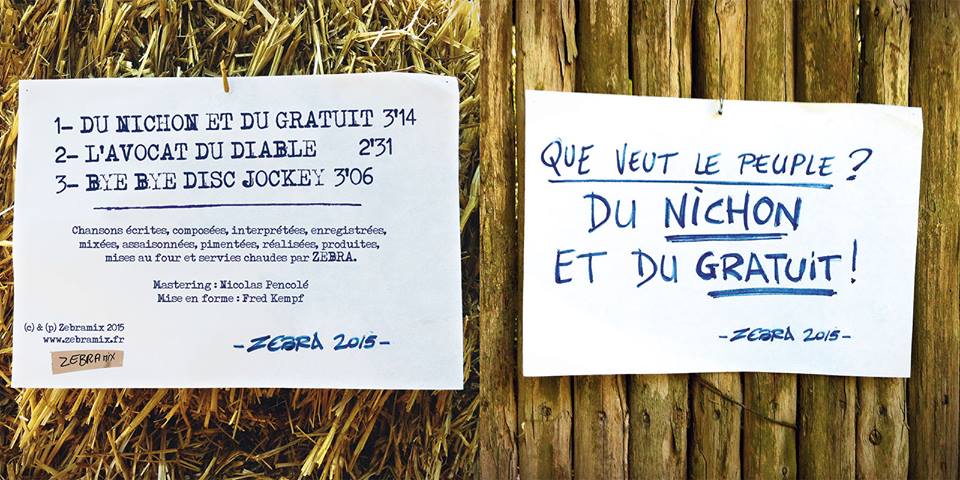 1- DU NICHON ET DU GRATUIT 3'14
2- L'AVOCAT DU DIABLE 2'31
3- BYE BYE DISC JOCKEY 3'06
Chansons écrites, composées, interprétées, enregistrées,
mixées, assaisonnées, pimentées, réalisées, produites,
mises au four et servies chaudes par ZEBRA.
Mastering : Nicolas Pencolé
Mise en forme : Fred Kempf
(c) & (p) Zebramix 2015
www.zebramix.fr
ZEBRA mix
- ZEBRA 2015 -
QUE VEUT LE PEUPLE ?
DU NICHON
ET DU GRATUIT !
- ZEBRA 2015 -